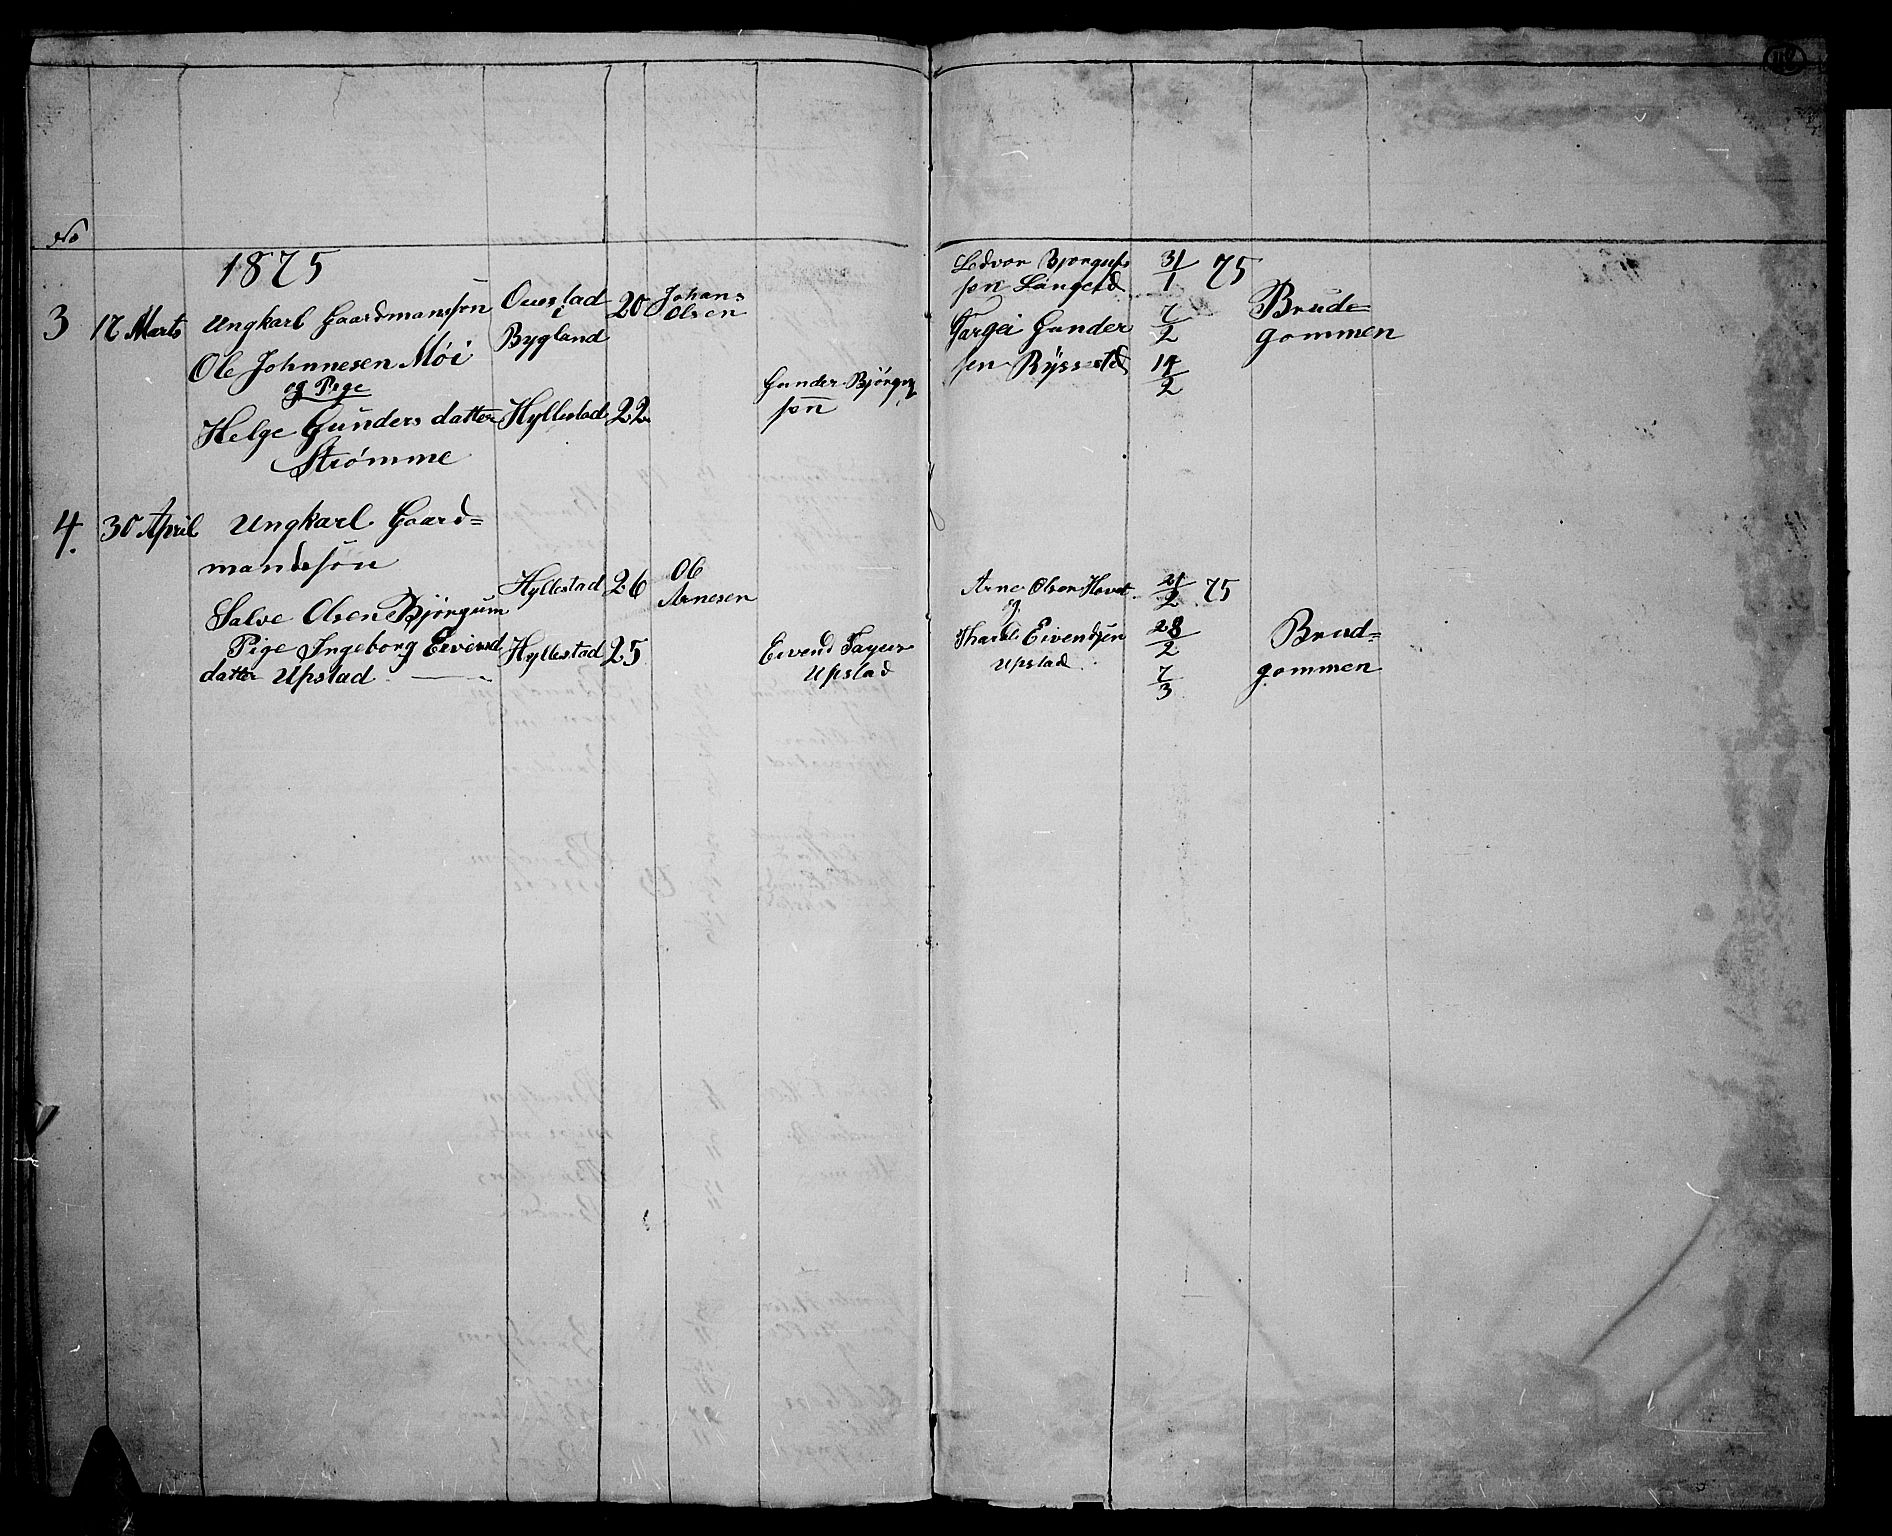 No
1875
3 17 Marts Ungkarl Gaardmanssøn
Ole Johnnesen Møi
og Pige
Helge Gunders datter
Strømme
Ouestad
i
Bygland
20
Johans
Olsen
Hyllestad 22
Gunder Bjørgu
søn
Ledvor Bjorgufs
søn Langeid
Targei Gunder
sen Rysstad
31/1 75
7/2
14/2
Brude=
gommen
4. 30 April Ungkarl Gaard=
mandssøn
Salve Olsen Bjørgum
Pige Ingeborg Eivend
datter Upstad
Hyllestad 26
Ole
Arnesen
Hyllestad 25
Eivend Tayeis
Upstad
Arne Olsen
og
Tharald Eivendsen
Upstad
21/2 75
28/2
7/3
Brud=
gommen